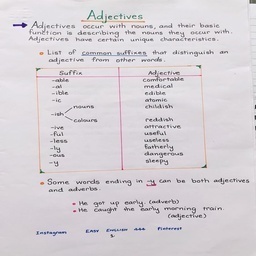 Adjectives
Adjectives occur with nouns, and their basic
function is describing the nouns they occur with.
Adjectives have certain unique characteristics.
List of common suffixes that distinguish an
adjective from other words.
Suffix Adjective
-able comfortable
-al medical
-ible edible
-ic atomic
-ish nouns childish
colours reddish
-ive attractive
-ful useful
-less useless
-ly fatherly
-ous dangerous
-y sleepy
Some words ending in -y can be both adjectives
and adverbs.
He got up early. (adverb)
He caught the early morning train.
(adjective)
Instagram EASY ENGLISH 444 Pinterest